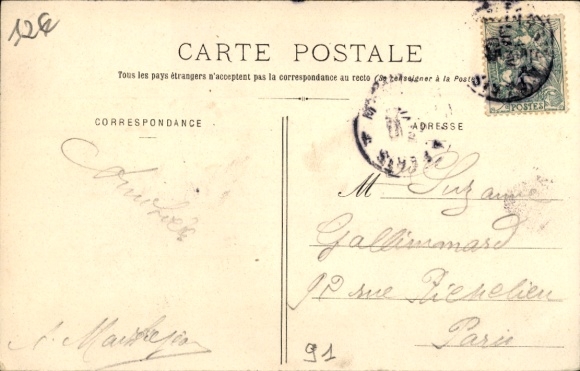 CARTE POSTALE
Tous les pays étrangers n'acceptent pas la correspondance au recto (Se renseigner à la Poste)
CORRESPONDANCE
ADRESSE
POSTES
PARIS
M Suzanne
Gallimard
rue Richelieu
Paris
91